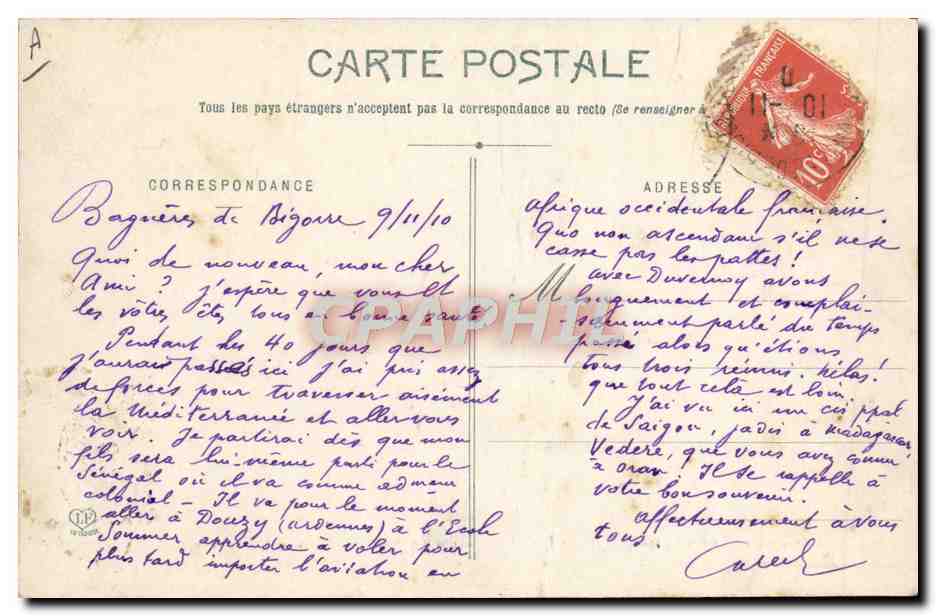 A
CARTE POSTALE
Tous les pays étrangers n'acceptent pas la correspondance au recto (Se renseigner à
CORRESPONDANCE
Bagnères de Bigorre 9/11/10
Quoi de nouveau, mon cher
Ami ? j'espère que vous et
les vôtres êtes tous en bonne santé
Pendant les 40 jours que
j'aurai passés ici j'ai pris assez
de forces pour traverser aisément
la Mediterranée et aller vous
voir. Je partirai dès que mon
fils sera lui-même parti pour le
Sénégal où il va comme
colonial - Il va pour le moment
aller à Douzy (ardennes) à l'Ecole
Sommer apprendre à voler pour
plus tard importer l'aviation en
LF
ADRESSE
afrique occidentale française.
Quo non ascendam s'il ne se
casse pas les pattes !
M
avec Duvernoy avons
longuement et complai-
samment parlé du temps
passé alors qu'étions
tous trois réunis. hélas !
que tout cela est loin.
J'ai vu ici un cis ppal
de Saigon, jadis à madagascar
Vedère, que vous avez connu
à oran. Il se rappelle à
votre bon souvenir.
affectueusement à vous
tous.
REPUBLIQUE FRANÇAISE
10c
11-10
CPAPHIL